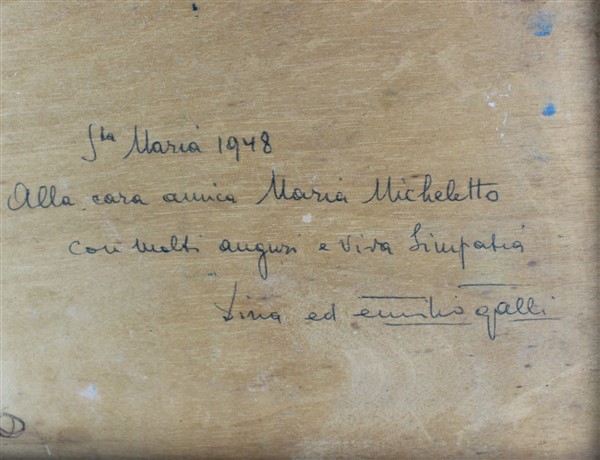 Sta Maria 1948
Alla cara amica Maria Micheletto
con molti auguri e viva Simpatia
Lina ed emilio galli